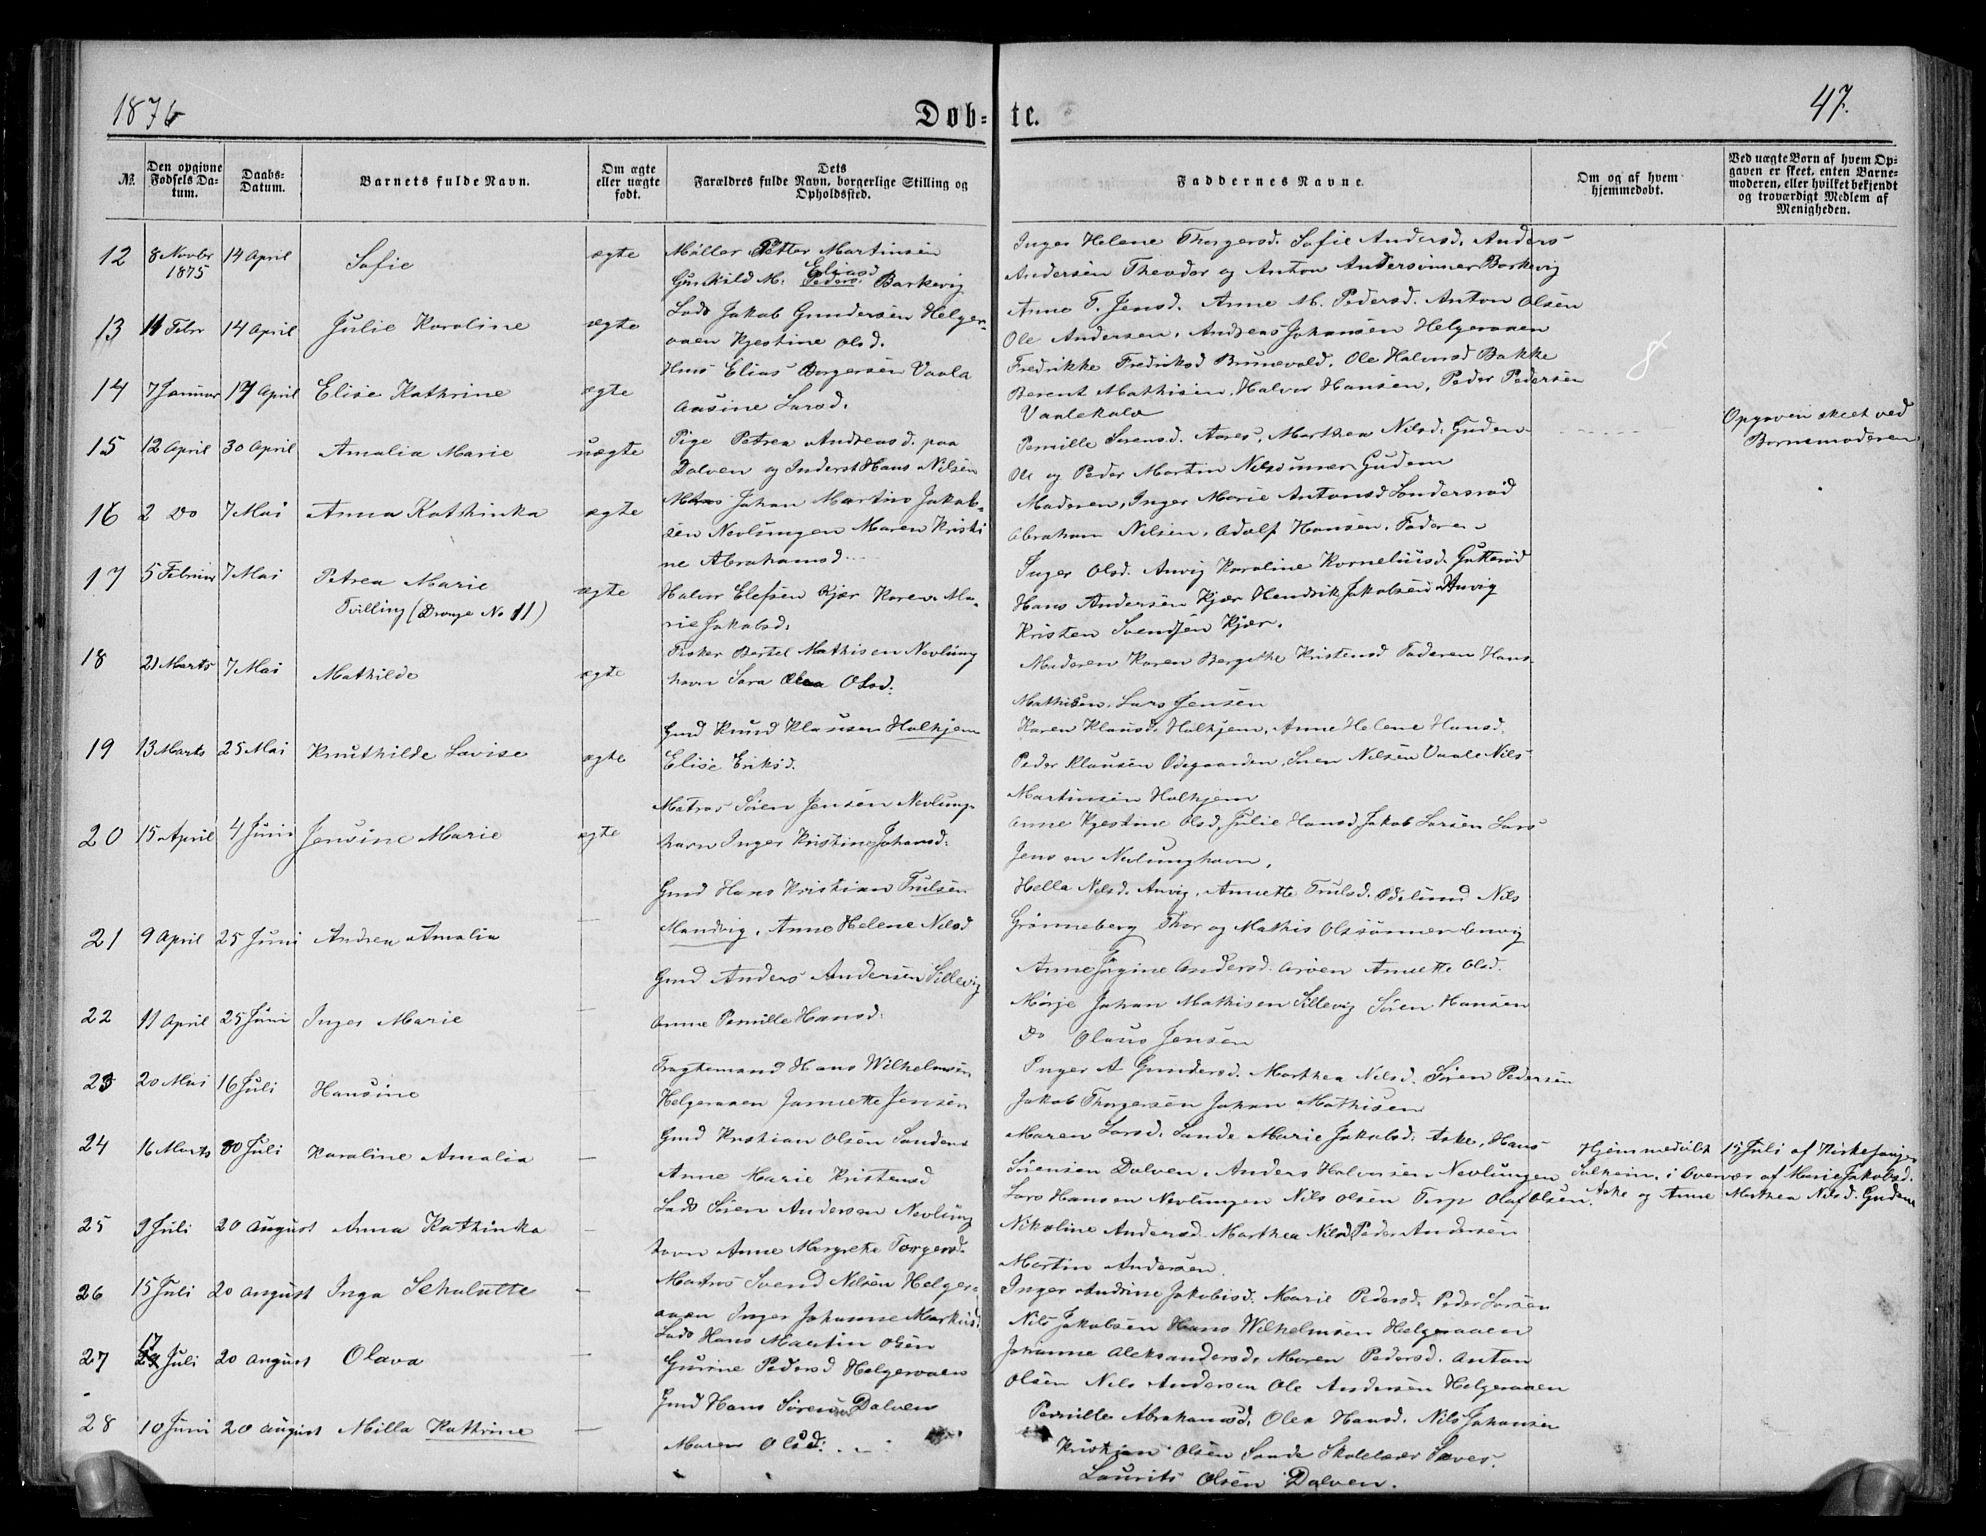 1876
Døb-
te.
47.
№.
Den opgivne Fødsels Datum.
Daabs-Datum.
Barnets fulde Navn.
Om ægte eller uægte født.
Dets Forældres fulde Navn, borgerlige Stilling og Opholdssted.
Faddernes Navne.
Om og af hvem hjemmedøbt.
Ved uægte Børn af hvem Opgaven er skeet, enten Barnemoderen, eller hvilket bekjendt og troværdigt Medlem af Menigheden.
12 8 Novbr 1875 14 April Sofie ægte Møller Petter Martinsen
Gunhild M. Peders. Eliasd Barkevig
Inger Helene Thorgersd. Sofie Andersd. Anders
Andersen Theodor og Anton Anderssønner Barkevig
13 11 Febr 14 April Julie Karoline ægte Lods Jakob Gundersen Helger-
aaen Kjestine Olsd.
Anne T. Jensd. Anne M. Pedersd. Anton Olsen
Ole Andersen, Andreas Johansen Helgeraaen
14 7 Januar 17 April Elise Kathrine ægte Hms Elias Borgersen Vaala
Aasine Larsd.
Fredrikke Fredriksd Brunevald, Ole Halvorsd Bakke
Berent Mathisen, Halvor Hansen, Peder Pedersen
Vaalekale
15 12 April 30 April Amalia Marie uægte Pige Petrea Andreasd. paa
Dalven og Inderst Hans Nilsen
Pernille Sørensd. Aares, Marthea Nilsd. Gudem
Ole og Peder Martin Nilssønner Gudem
Opgaven skeet ved
Barnemoderen
16 2 Do 7 Mai Anna Kathinka ægte Matros Johan Martin Jakob-
sen Nevlungen Maren Kristi
ne Abrahamsd
Moderen, Inger Marie Antonsd Søndersrød
Abraham Nilsen, Adolf Hansen, Faderen
17 5 Februar 7 Mai Petrea Marie
Tvilling (Drenge No 11) ægte Halvor Elefsen Kjær Karen Ma-
rie Jakobsd.
Inger Olsd. Anvig Karoline Korneliusd. Gutterød
Hans Andersen Kjær Hendrik Jakobsen Anvig
Kristen Svendsen Kjær.
18 21 Marts 7 Mai Mathilde ægte Fisker Bertel Mathisen Nevlung
havn Sara Olea Olsd.
Moderen Karen Bergithe Kristensd Faderen Hans
Mathisen, Lars Jensen
19 13 Marts 25 Mai Knuthilde Lovise ægte Gmd Knud Klausen Halkjem
Elise Eriksd.
Karen Klausd. Halkjem, Anne Helene Hansd.
Peder Klausen Ødegaarden, Søren Nilsen Vaale Nils
Martinsen Halkjem
20 15 April 4 Juni Jensine Marie ægte Matros Søren Jensen Nevlung-
havn Inger Kristine Johansd.
Anne Kjestine Olsd, Julie Hansd Jakob Larsen Lars
Jensen Nevlunghavn.
21 9 April 25 Juni Andrea Amalia — Gmd Hans Kristian Trulsen
Mandvig, Anne Helene Nilsd
Hella Nilsd. Anvig, Annette Trulsd. Ødelund Nils
Grønneberg Thor og Mathis Olssønner Anvig
22 11 April 25 Juni Inger Marie — Gmd Anders Andersen Sillevig
Anne Pernille Hansd.
Anne Jørgine Andersd. Arøen Annette Olsd.
Mørje Johan Mathisen Sillevig Søren Hansen
Do Olaus Jensen
23 20 Mai 16 Juli Hansine — Fragtemand Hans Wilhelmsen
Helgeraaen Jannette Jensen
Inger A Gundersd. Marthea Nilsd. Søren Pedersen
Jakob Thorgersen Johan Mathisen
24 16 Marts 30 Juli Karoline Amalia — Gmd Kristian Olsen Sanden
Anne Marie Kristensd
Maren Larsd. Sande Marie Jakobsd. Aske, Hans
Sørensen Dalven, Anders Halvorsen Nevlungen
Lars Hansen Nevlungen Nils Olsen Torp Olaf Olsen.
Hjemmedøbt 15 Juli af Kirkesanger
Solheim, i Overvær af Marie Jakobsd.
Aske og Anne Mathea Nilsd. Gudem
25 9 Juli 20 August Anna Kathinka — Lods Søren Andersen Nevlung
havn Anne Margrete Torgersd.
Nikoline Andersd. Marthea Nilsd Peder Andersen
Martin Andersen.
26 15 Juli 20 August Inga Schalutte — Matros Svend Nilsen Helger-
aaen Inger Johanne Markusd.
Inger Andrine Jakobsd. Marie Pedersd. Peder Larsen
Nils Jakobsen Hans Wilhelmsen Helgeraaen
27 17 Juli 20 August Olava Lods Hans Martin Olsen
Gurine Pedersd Helgeraaen
Johanne Aleksandersd. Maren Pedersd. Anton
Olsen Nils Andersen Ole Andersen Helgeraaen
28 10 Juni 20 August Milla Kathrine — Gmd Hans Sørensen Dalven
Maren Olsd.
Pernille Abrahamsd. Olea Hansd. Nils Johansen
Kristian Olsen Sande Skolelærer Saves.
Laurits Olsen Dalven.